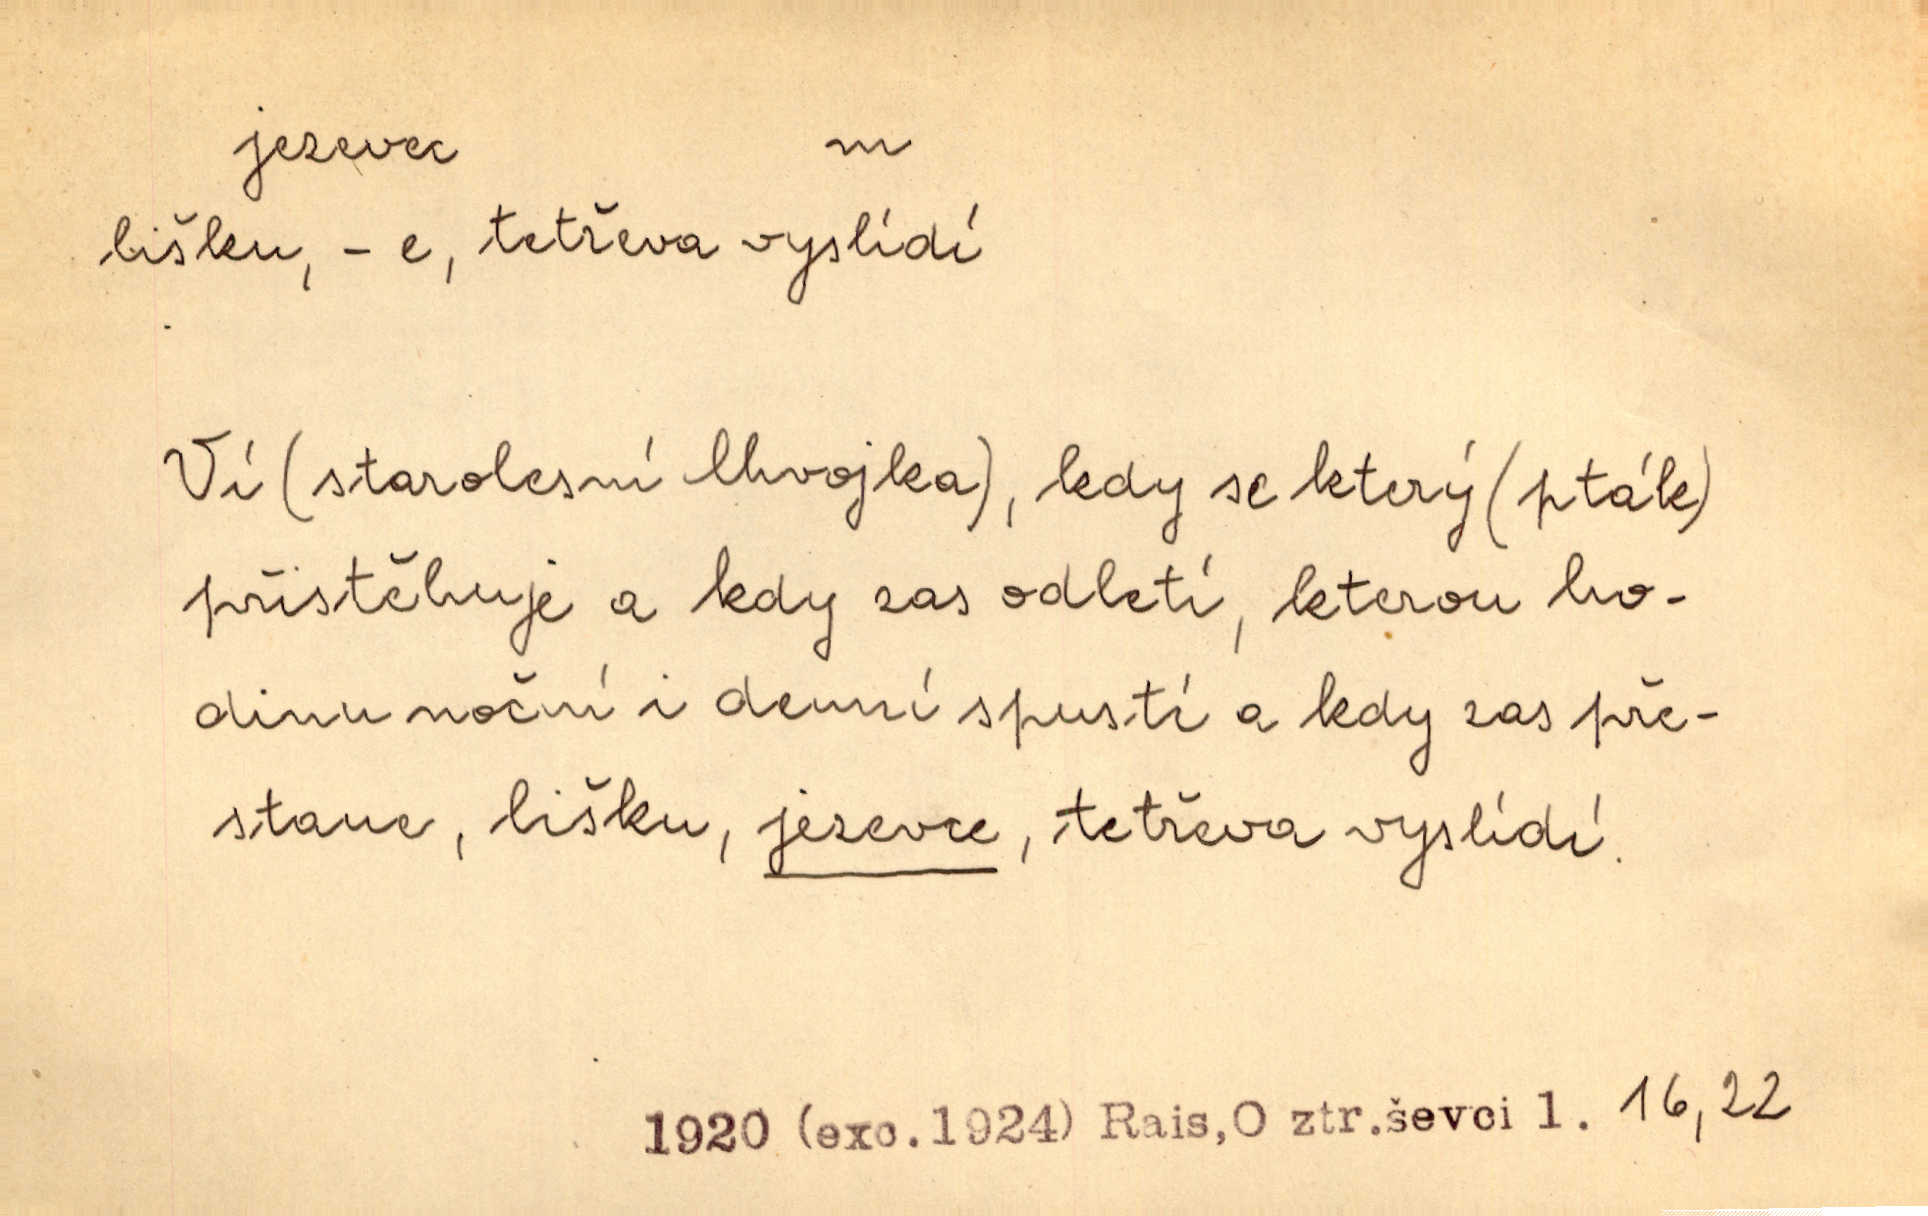 jezevec m
lišku, - e, tetřeva vyslídí
Ví (starolesní Chvojka), kdy se který (pták)
přistěhuje a kdy zas odletí, kterou ho-
dinu noční i denní spustí a kdy zas pře-
stane, lišku, jezevce, tetřeva vyslídí.
1920 (exc.1924) Rais,O ztr.ševci 1. 16,22